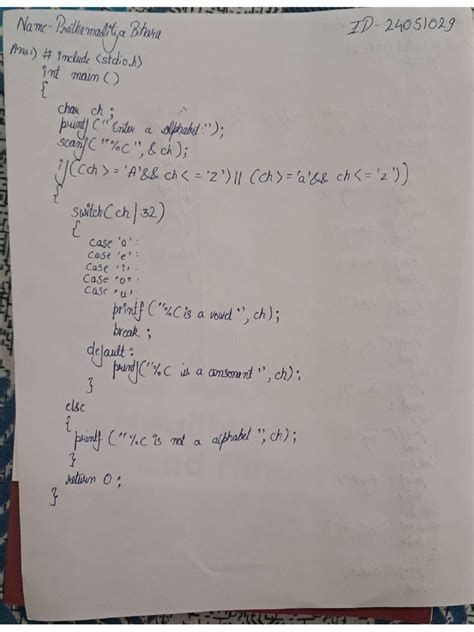 Name- Prathamaditya Behera ID- 24051029
Ans:) # include <stdio.h>
int main ()
{
char ch ;
printf ("Enter a alphabet:");
scanf ("%C", & ch);
if ((ch >= 'A' && ch <= 'Z') || (ch >= 'a' && ch <= 'z'))
{
switch (ch | 32)
{
case 'a' :
case 'e' :
case 'i' :
case 'o' :
case 'u' :
printf ("%C is a vowel", ch);
break ;
default :
printf ("%C is a consonant", ch);
}
else
{
printf ("%C is not a alphabet", ch);
}
return 0 ;
}